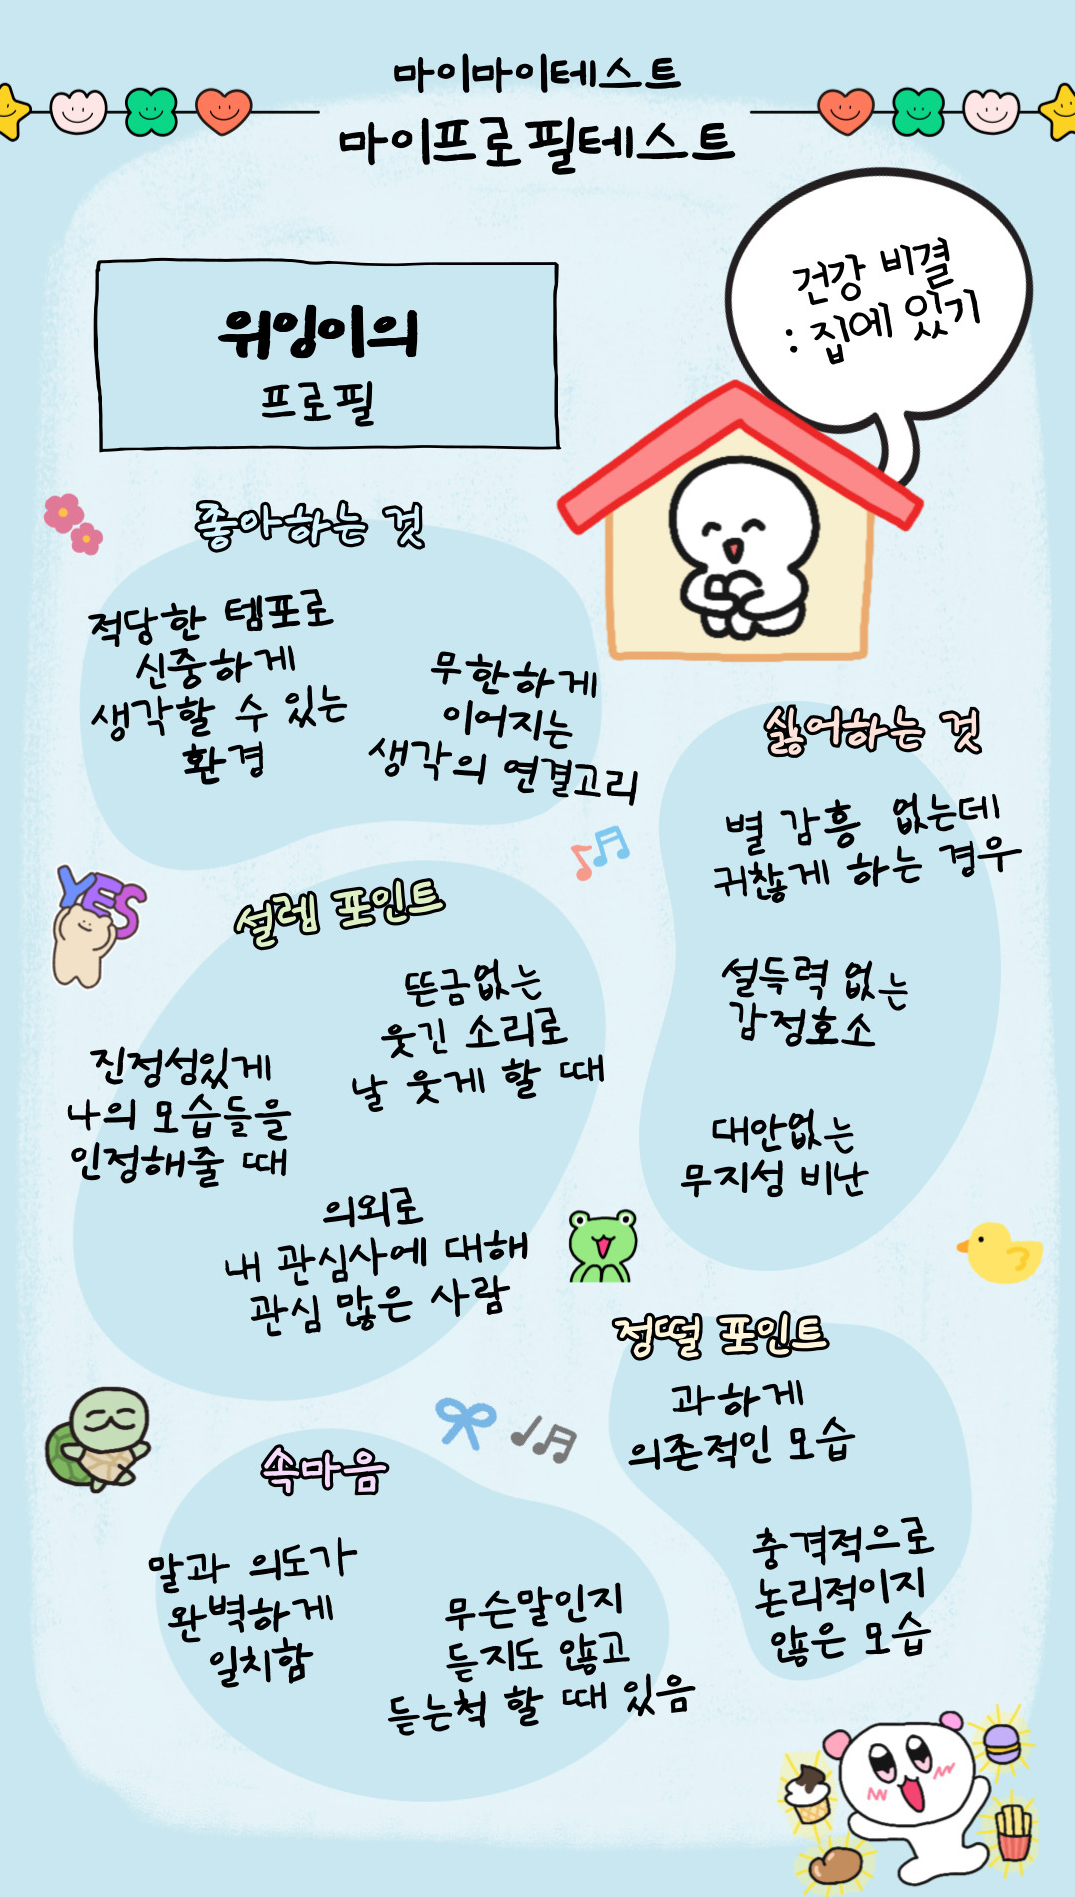 마이마이테스트
마이프로필테스트
건강 비결
: 집에 있기
위잉이의
프로필
좋아하는 것
적당한 템포로
신중하게
생각할 수 있는
환경
무한하게
이어지는
생각의 연결고리
싫어하는 것
별 감흥 없는데
귀찮게 하는 경우
설득력 없는
감정호소
대안없는
무지성 비난
YES
설렘 포인트
뜬금없는
웃긴 소리로
날 웃게 할 때
진정성있게
나의 모습들을
인정해줄 때
의외로
내 관심사에 대해
관심 많은 사람
정떨 포인트
과하게
의존적인 모습
충격적으로
논리적이지
않은 모습
속마음
말과 의도가
완벽하게
일치함
무슨말인지
듣지도 않고
듣는척 할 때 있음